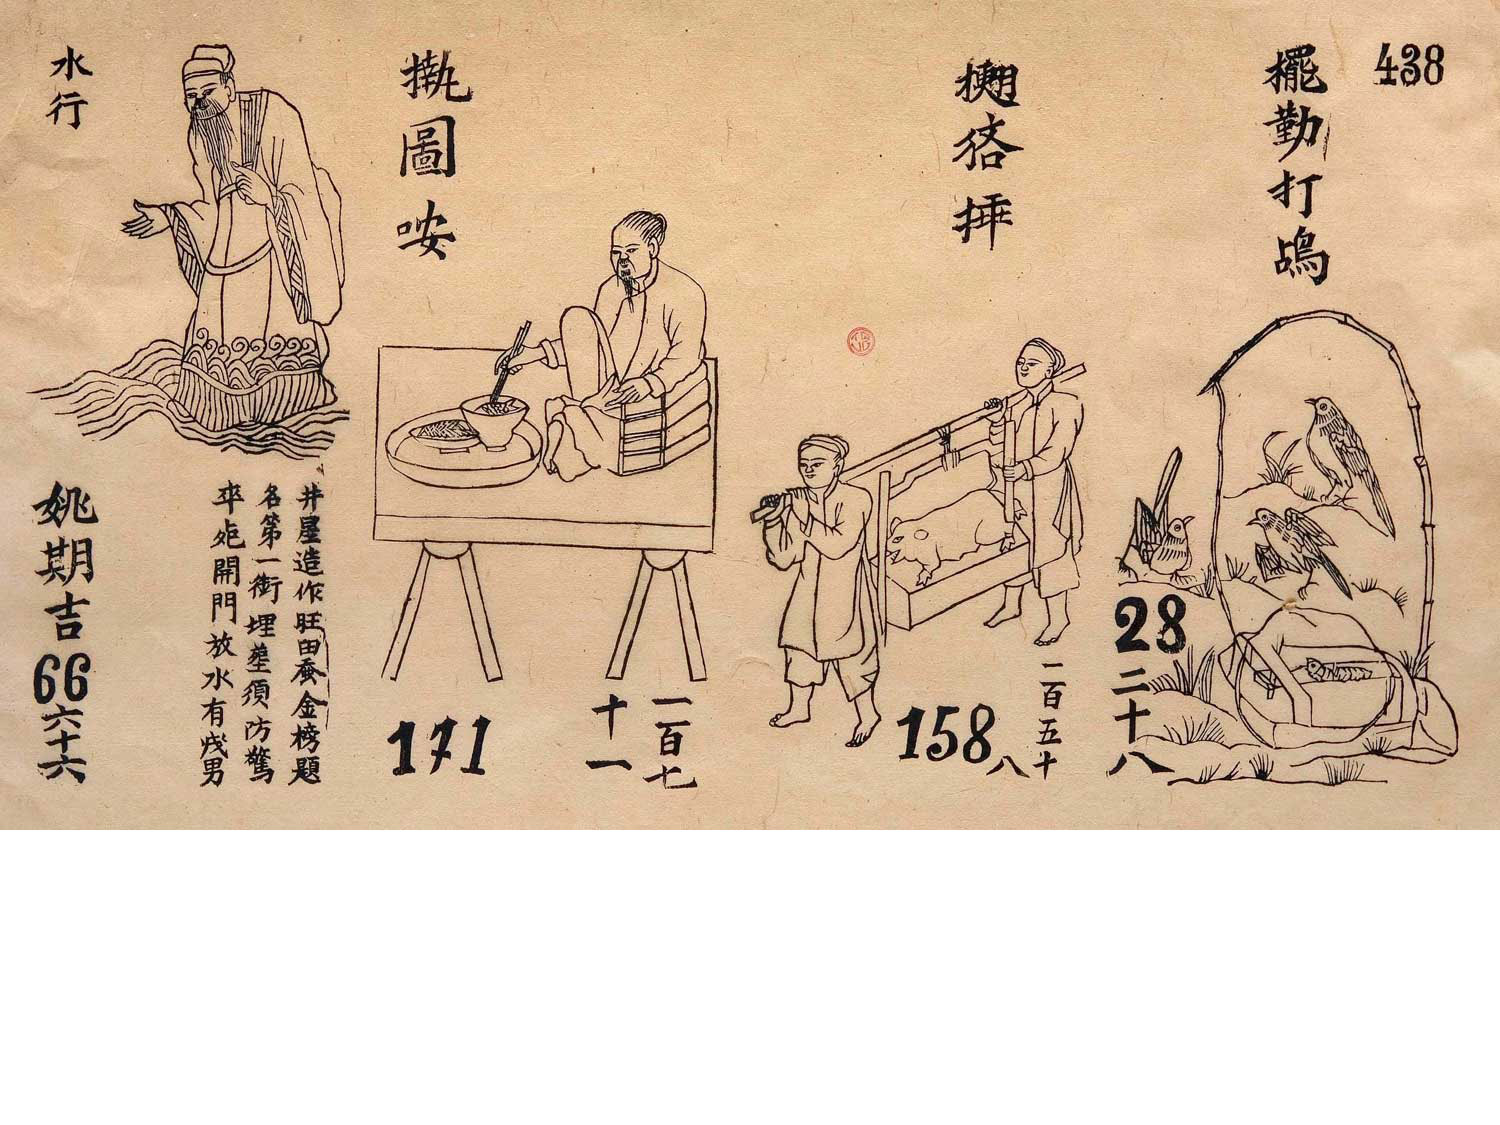 438
擺勤打鴣
28
二十八
𢱎𢓃挿
158
一百五十
八
圖咹
171
一百七
十一
水行
井星造作旺田蚕金榜題
名第一銜埋塟須防驚
卒𣦸開門放水有𢧐男
姚期吉
66
六十六